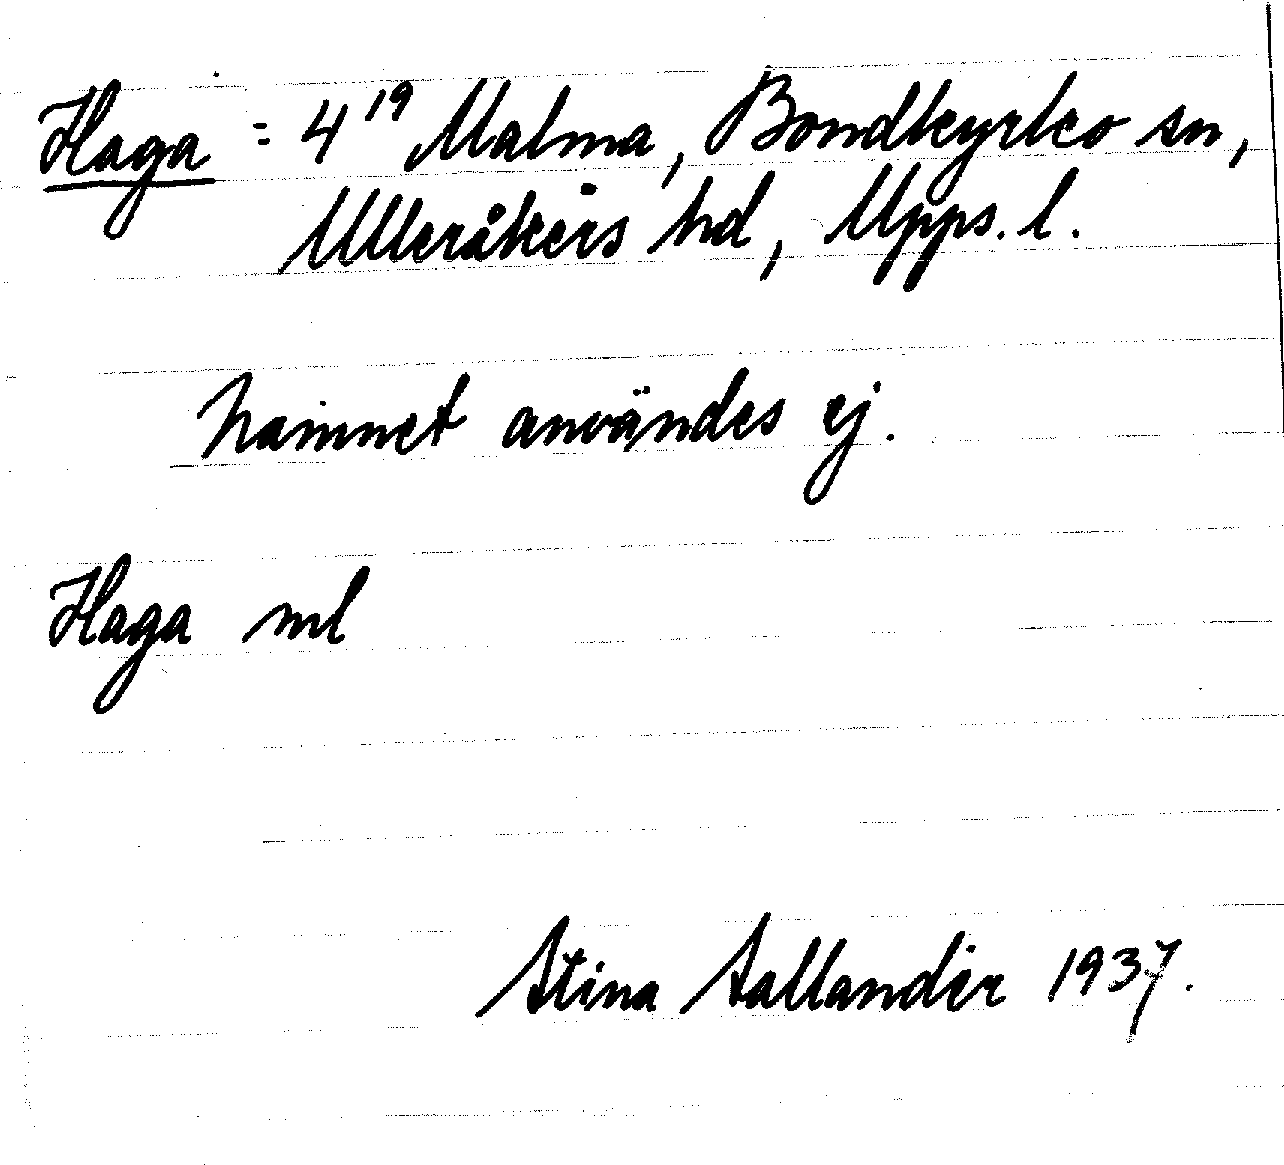 Haga = 4¹⁹ Malma, Bondkyrko sn,
Ulleråkers hd, Upps. l.
Namnet användes ej.
Haga ml
Stina Sallander 1937.